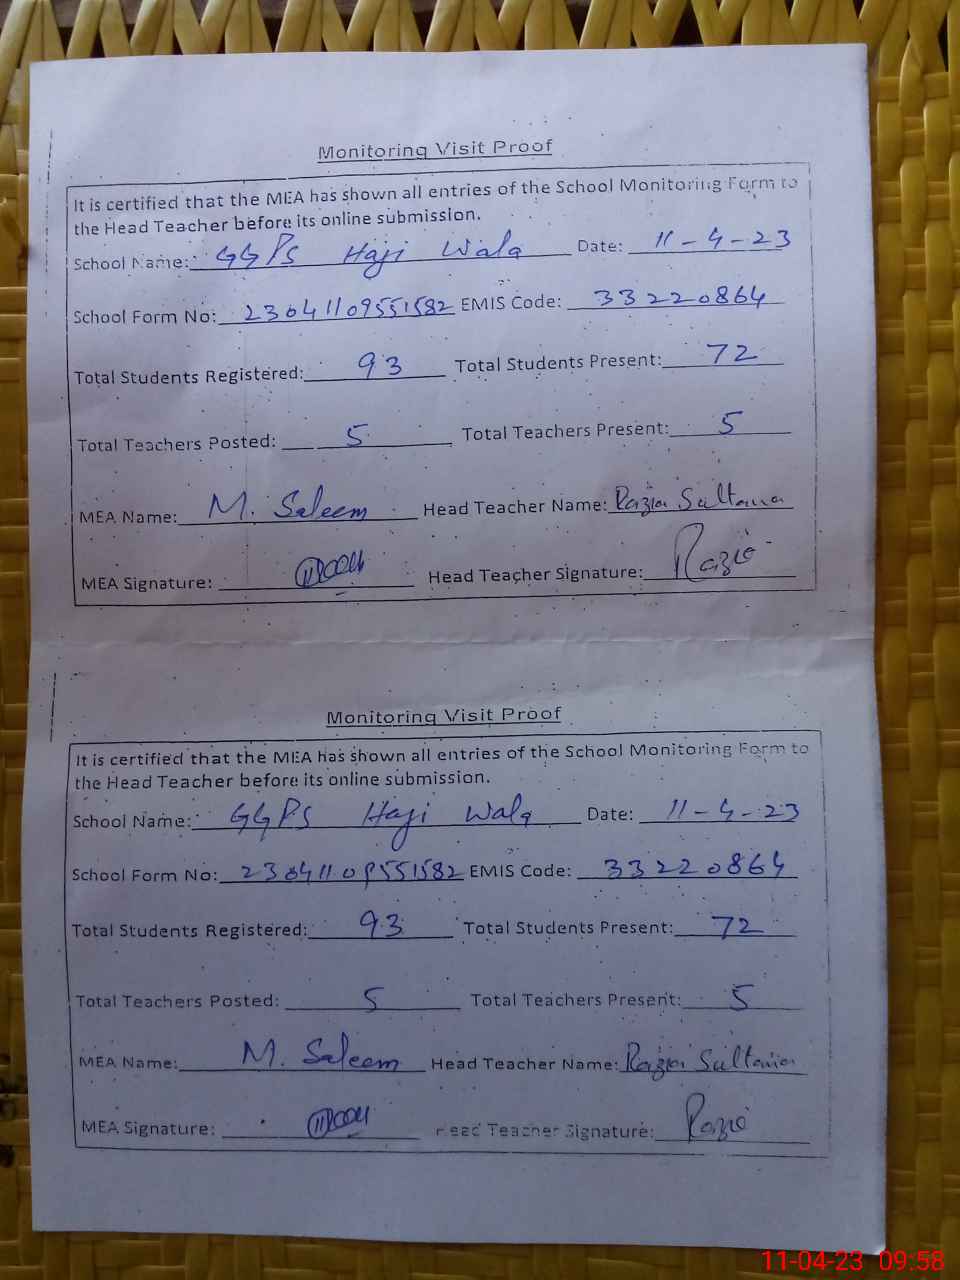 Monitoring Visit Proof
It is certified that the MEA has shown all entries of the School Monitoring Form to
the Head Teacher before its online submission.
School Name: GGPS Haji Wala Date: 11-4-23
School Form No: 23041109551582 EMIS Code: 33220864
Total Students Registered: 93 Total Students Present: 72
Total Teachers Posted: 5 Total Teachers Present: 5
MEA Name: M. Saleem Head Teacher Name: Razia Sultana
MEA Signature: Head Teacher Signature: Razia
Monitoring Visit Proof
It is certified that the MEA has shown all entries of the School Monitoring Form to
the Head Teacher before its online submission.
School Name: GGPS Haji Wala Date: 11-4-23
School Form No: 23041109551582 EMIS Code: 33220864
Total Students Registered: 93 Total Students Present: 72
Total Teachers Posted: 5 Total Teachers Present: 5
MEA Name: M. Saleem Head Teacher Name: Razia Sultana
MEA Signature: Head Teacher Signature: Razia
11-04-23 09:58